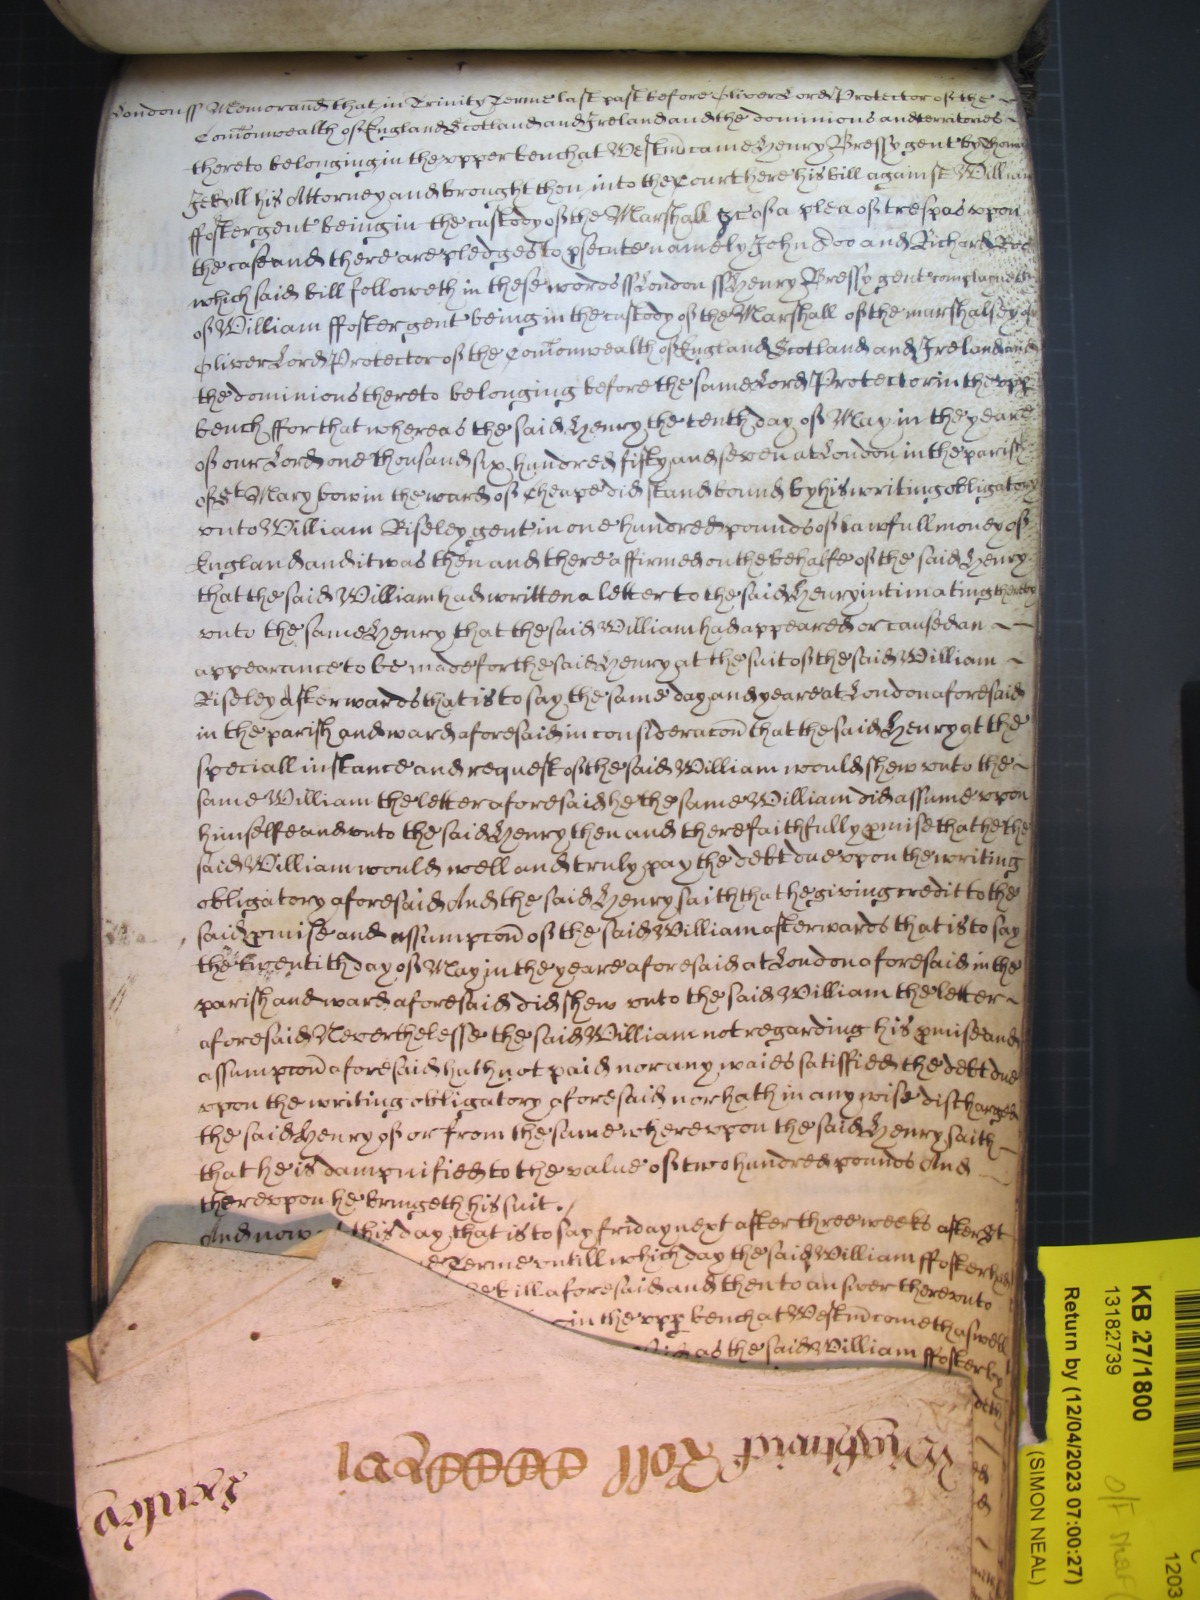 London ss Memorand that in Trinity Terme last past before Oliver Lord Protector of the
Comonwealth of England Scotland and Ireland and the dominions and territories
thereto belonging in the upper bench at Westm came Henry Bressy gent by Thomas
Jekyll his Attorney and brought then into the Court here his bill against William
ffoster gent being in the custody of the Marshall &c of a plea of trespas upon
the case and there are pledges to psecute namely John Doo and Richard Roo
which said bill followeth in these words ss London ss Henry Bressy gent complayneth
of William ffoster gent being in the custody of the Marshall of the marshalsey of
Oliver Lord Protector of the Comonwealth of England Scotland and Ireland and
the dominions thereto belonging before the same Lord Protector in the upp
bench ffor that whereas the said Henry the tenth day of May in the yeare
of our Lord one thousand six hundred fifty and seven at London in the parish
of St Mary bow in the ward of Cheape did stand bound by his writing obligatory
unto William Riseley gent in one hundred pounds of lawfull money of
England and it was then and there affirmed on the behalfe of the said Henry
that the said William had written a letter to the said Henry intimating thereby
unto the same Henry that the said William had appeared or caused an
appearance to be made for the said Henry at the suit of the said William
Riseley Afterwards that is to say the same day and yeare at London aforesaid
in the parish and ward aforesaid in consideracon that the said Henry at the
speciall instance and request of the said William would shew unto the
same William the letter aforesaid he the same William did assume upon
himselfe and unto the said Henry then and there faithfully pmise that he the
said William would well and truly pay the debt due upon the writing
obligatory aforesaid And the said Henry saith that he giving credit to the
said pmise and assumpcon of the said William afterwards that is to say
the twentith day of May in the yeare aforesaid at London aforesaid in the
parish and ward aforesaid did shew unto the said William the letter
aforesaid Neverthelesse the said William not regarding his pmise and
assumpcon aforesaid hath not paid nor any waies satisfied the debt due
upon the writing obligatory aforesaid nor hath in any wise discharged
the said Henry of or from the same whereupon the said Henry saith
that he is dampnified to the value of two hundred pounds And
thereupon he bringeth his suit.
And now this day that is to say friday next after three weeks after St
Terme untill which day the said William ffoster had
bill aforesaid and then to answer thereunto
in the upp bench at Westm cometh aswell
as the said William ffoster by
Wightwick Roll
KB 27/1800
13182739
Return by (12/04/2023 07:00:27)
(SIMON NEAL)
1203